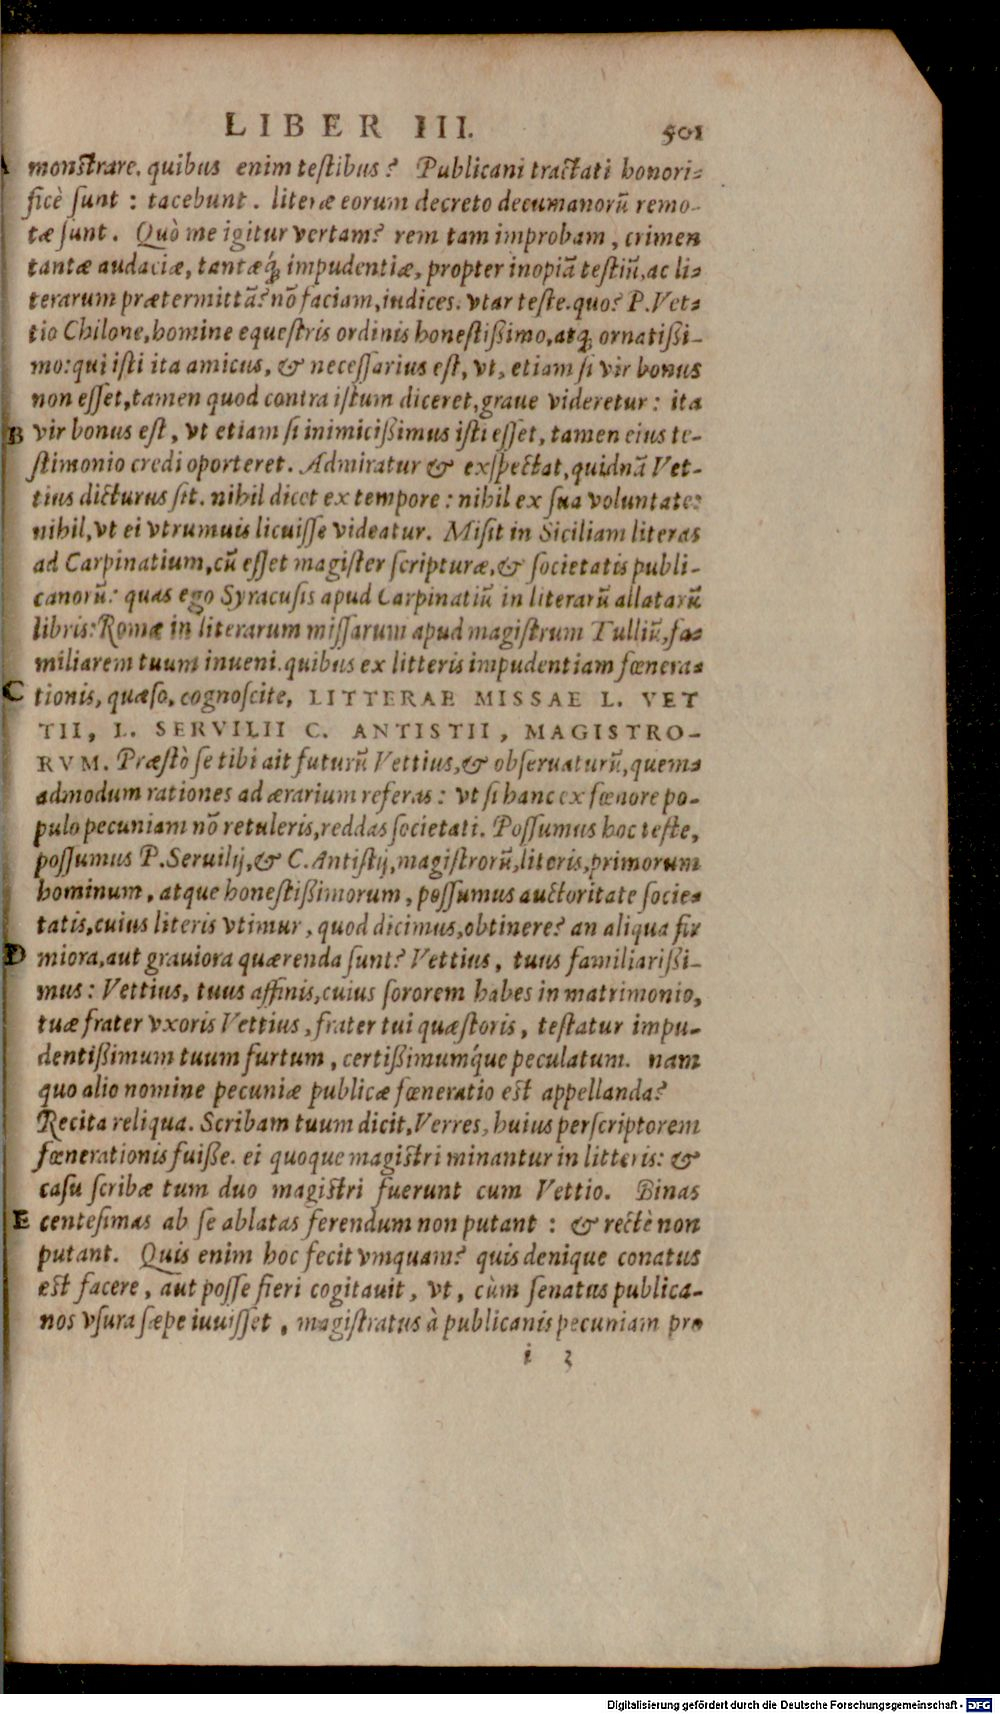 LIBER III. 501
A monstrare. quibus enim testibus? Publicani tractati honori-
ficè sunt : tacebunt. literæ eorum decreto decumanorũ remo-
tæ sunt. Quò me igitur vertam? rem tam improbam, crimen
tantæ audaciæ, tantæq́; impudentiæ, propter inopiã testiũ, ac li-
terarum prætermittã? nõ faciam, iudices. vtar teste. quo? P. Vet-
tio Chilone, homine equestris ordinis honestißimo, atq; ornatißi-
mo: qui isti ita amicus, & necessarius est, vt, etiam si vir bonus
non esset, tamen quod contra istum diceret, graue videretur : ita
B vir bonus est, vt etiam si inimicißimus isti esset, tamen eius te-
stimonio credi oporteret. Admiratur & exspectat, quidnã Vet-
tius dicturus sit. nihil dicet ex tempore : nihil ex sua voluntate:
nihil, vt ei vtrumuis licuisse videatur. Misit in Siciliam literas
ad Carpinatium, cũ esset magister scripturæ, & societatis publi-
canorũ: quas ego Syracusis apud Carpinatiũ in literarũ allatarũ
libris: Romæ in literarum missarum apud magistrum Tulliũ, fa-
miliarem tuum inueni. quibus ex litteris impudentiam fœnera-
C tionis, quæso, cognoscite, LITTERAE MISSAE L. VET
TII, L. SERVILII C. ANTISTII, MAGISTRO-
RVM. Præstò se tibi ait futurũ Vettius, & obseruaturũ, quem-
admodum rationes ad ærarium referas : vt si hanc ex fœnore po-
pulo pecuniam nõ retuleris, reddas societati. Possumus hoc teste,
possumus P. Seruilij, & C. Antistij, magistrorũ, literis, primorum
hominum, atque honestißimorum, possumus auctoritate socie-
tatis, cuius literis vtimur, quod dicimus, obtinere? an aliqua fir
D miora, aut grauiora quærenda sunt? Vettius, tuus familiarißi-
mus : Vettius, tuus affinis, cuius sororem habes in matrimonio,
tuæ frater vxoris Vettius, frater tui quæstoris, testatur impu-
dentißimum tuum furtum, certißimumq́ue peculatum. nam
quo alio nomine pecuniæ publicæ fœneratio est appellanda?
Recita reliqua. Scribam tuum dicit, Verres, huius perscriptorem
fœnerationis fuiße. ei quoque magistri minantur in litteris: &
casu scribæ tum duo magistri fuerunt cum Vettio. Binas
E centesimas ab se ablatas ferendum non putant : & rectè non
putant. Quis enim hoc fecit vmquam? quis denique conatus
est facere, aut posse fieri cogitauit, vt, cùm senatus publica-
nos vsura sæpe iuuisset, magistratus à publicanis pecuniam pro
i 3
Digitalisierung gefördert durch die Deutsche Forschungsgemeinschaft - DFG